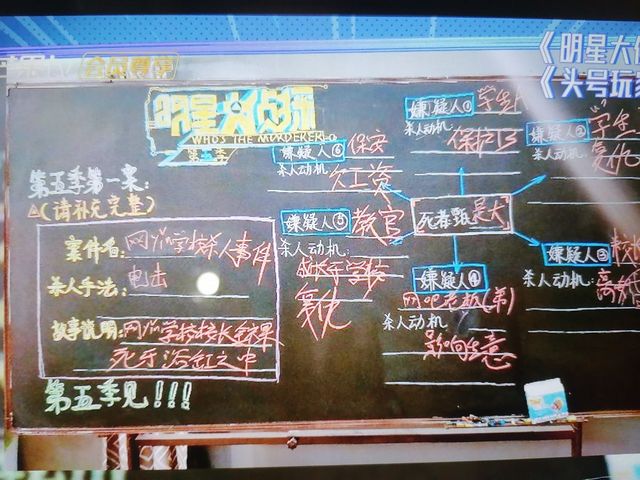 《明星大侦
《头号玩家
会员尊享
明星大侦探
WHO'S THE MURDERER
第五季
第五季第一案:
(请补充完整)
案件名: 网瘾学校杀人事件
杀人手法: 电击
故事说明: 网瘾学校校长甄某
死于浴缸之中
第五季见!!!
死者甄是大
嫌疑人①
杀人动机:
保护
嫌疑人②
杀人动机:
复仇
嫌疑人③
杀人动机:
嫌疑人④
网吧老板(弟)
杀人动机:
影响生意
嫌疑人⑤ 教官
杀人动机:
学校
复仇
嫌疑人⑥ 保安
杀人动机:
欠工资